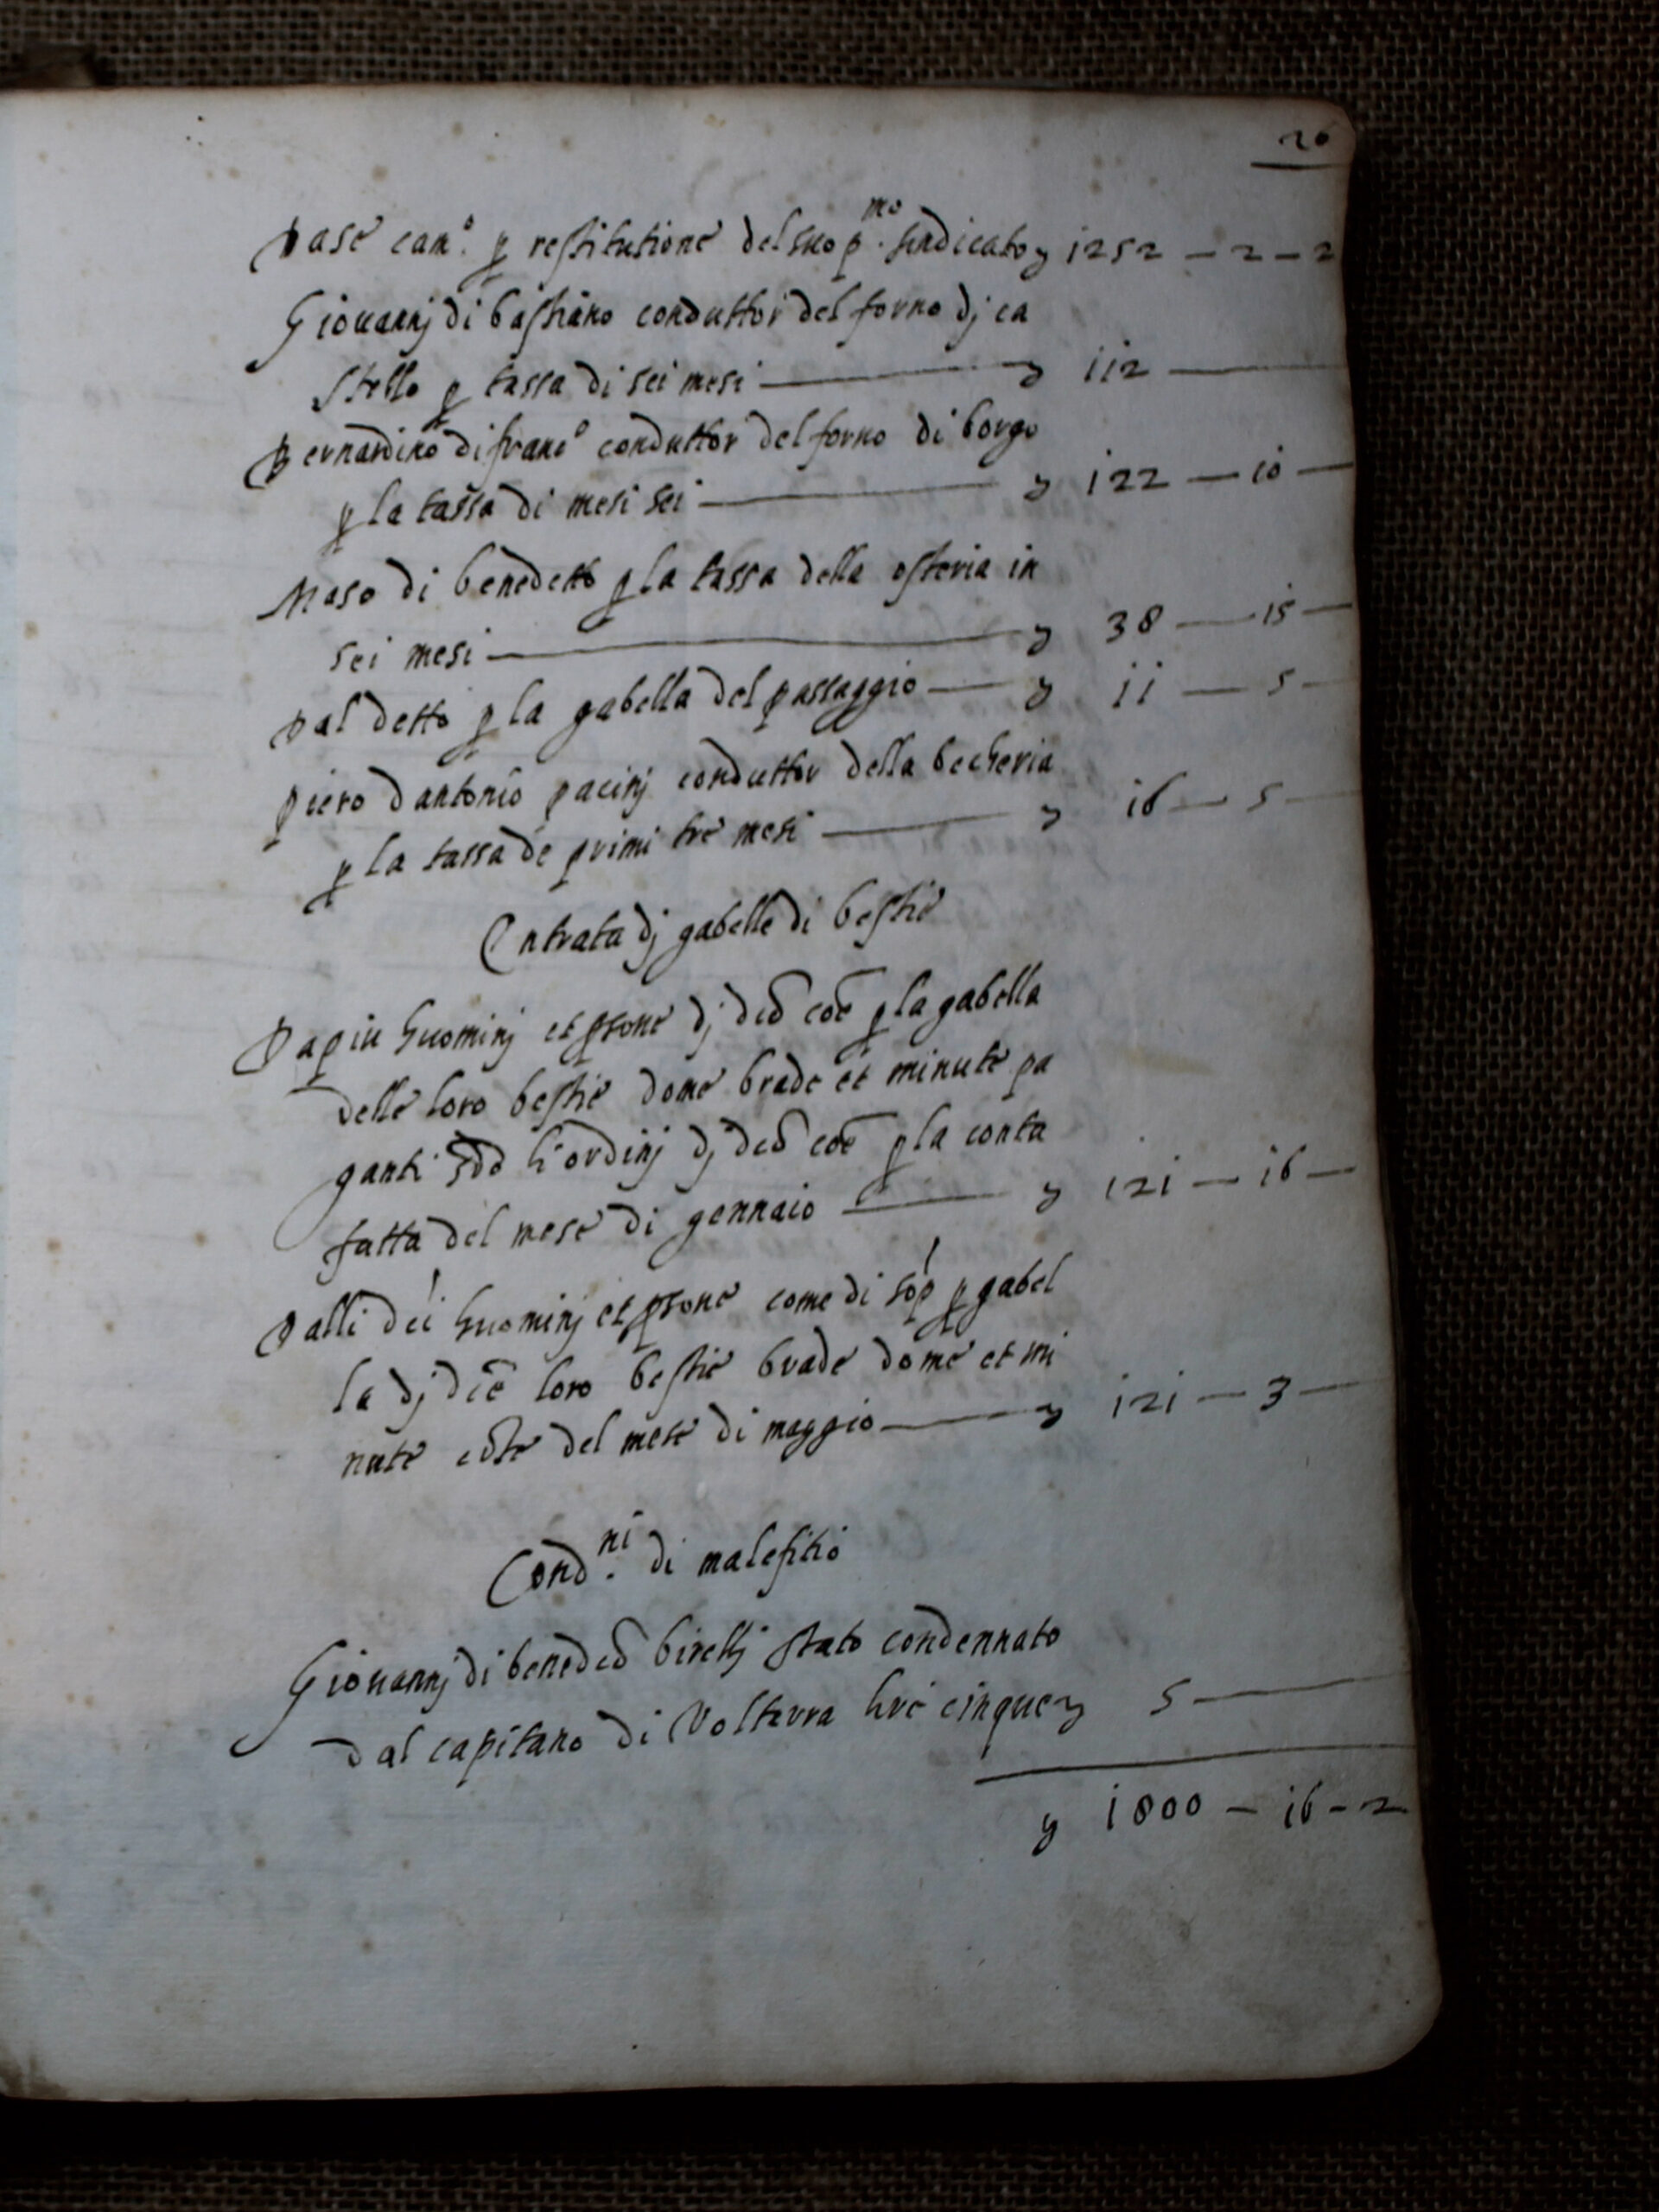 26
Da se cam.º p restitutione del suo p.mo sindicato y 1252 - 2 - 2
Giouannj di bastiano conduttor del forno dj ca
stello p tassa di sei mesi y 112
Bernardino di franc.º conduttor del forno di borgo
p la tassa di mesi sei y 122 - 10
Maso di benedetto p la tassa della osteria in
sei mesi y 38 - 15
Dal detto p la gabella del passaggio y 11 - 5
piero d antonio pacinj conduttor della becheria
p la tassa de primi tre mesi y 16 - 5
Entrata dj gabelle di bestie
Da piu huominj et psone dj dcõ coẽ p la gabella
delle loro bestie dome brade et minute pa
ganti sdõ li ordinj dj dcõ coẽ p la conta
fatta del mese di gennaio y 121 - 16
Dalli dci huominj et psone come di sop p gabel
la dj dcẽ loro bestie brade dome et mi
nute del mese di maggio y 121 - 3
Cond.ni di malefitio
Giouannj di benedcõ birellj stato condennato
dal capitano di Volterra lire cinque y 5
y 1800 - 16 - 2